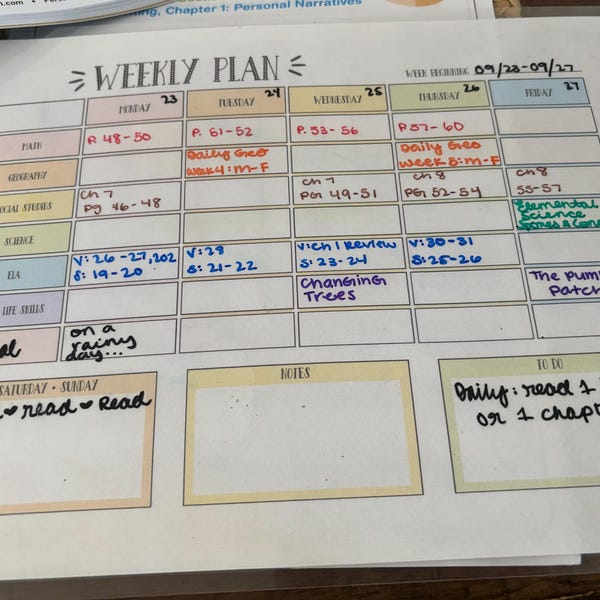 .com •
ng, Chapter 1: Personal Narratives
WEEKLY PLAN
WEEK BEGINNING 09/23-09/27
MONDAY 23
TUESDAY 24
WEDNESDAY 25
THURSDAY 26
FRIDAY 27
MATH
P. 48-50
P. 51-52
P. 53-56
P. 57-60
GEOGRAPHY
Daily Geo
week 4: M-F
Daily Geo
week 5: M-F
SOCIAL STUDIES
Ch 7
pg 46-48
Ch 7
PG 49-51
Ch 8
PG 52-54
Ch 8
55-57
SCIENCE
Elemental
Science
ELA
V: 26-27, 202
S: 19-20
V: 28
S: 21-22
V: Ch 1 Review
S: 23-24
V: 30-31
S: 25-26
LIFE SKILLS
Changing
Trees
The Pum
Patch
al
on a
rainy
day...
SATURDAY • SUNDAY
♥ read ♥ Read
NOTES
TO DO
Daily: read 1
or 1 chapt